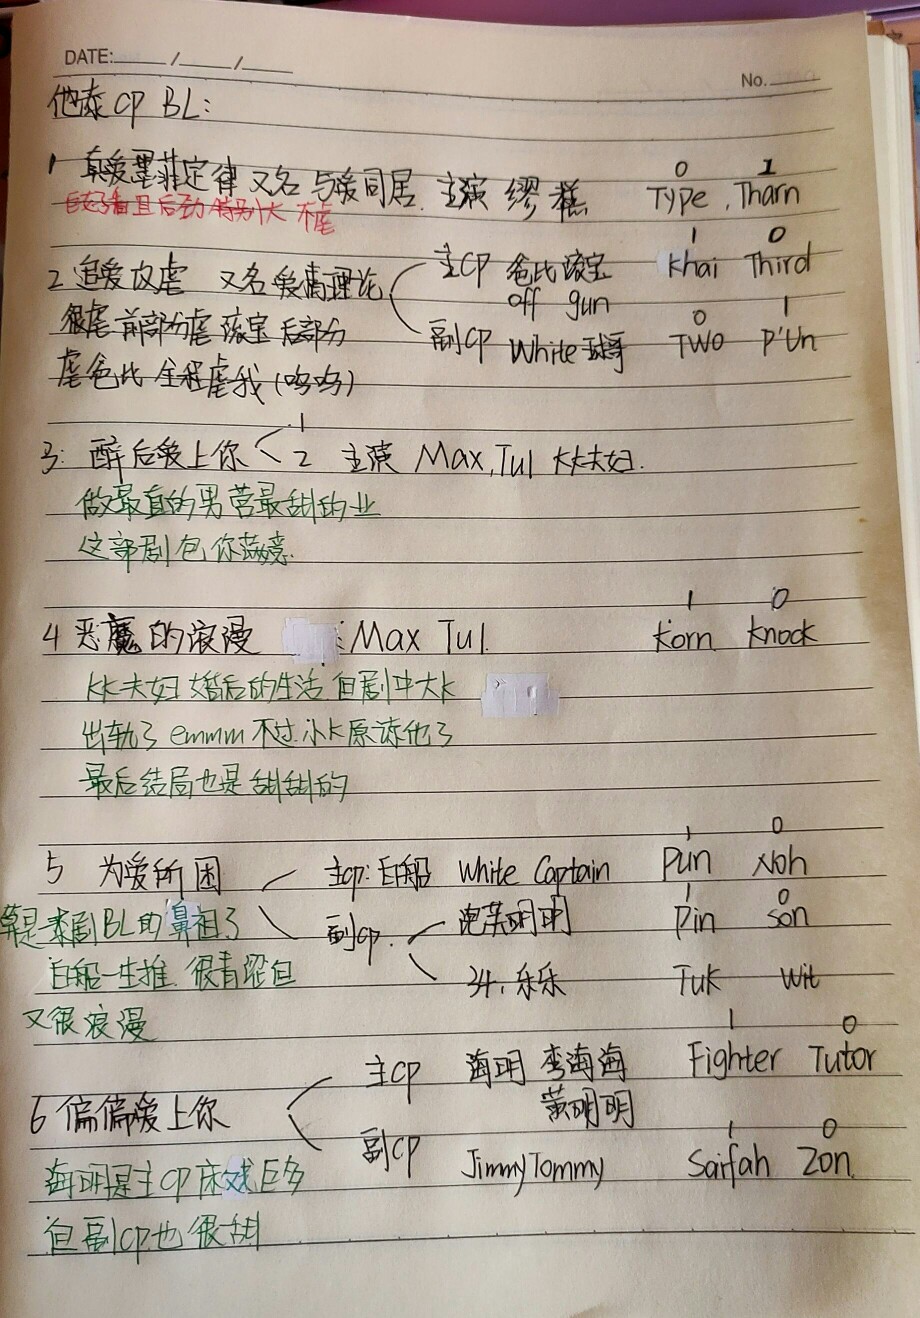 DATE: / /
No.
他泰CP BL:
1 真爱墨菲定律 又名 与爱同居. 主演 缪糕 0 Type, 1 Tharn
好看且后劲特别大 不虐
2 追爱以虐 又名 爱情理论 主CP 爸比滚宝 1 Khai 0 Third
off gun
很虐 前部分虐滚宝 后部分
副CP White 0 TWO 1 P'Un
虐爸比 全程虐我 (呜呜)
3: 醉后爱上你 1 2 主演 Max, Tul kk夫妇.
做最直的男 营最甜的业
这部剧包你满意.
4 恶魔的浪漫 : Max Tul. 1 Korn 0 Knock
kk夫妇 婚后的生活 但剧中大k
出轨了 emmm 不过小k原谅他了
最后结局也是甜甜的
5 为爱所困 主cp: 白船 White Captain 1 Pun 0 Noh
算是泰剧BL的鼻祖了 副cp. 明明 1 Pin 0 Son
白船一生推. 很青涩但
乐乐 Tuk Wit
又很浪漫
主CP 海明 李海海 1 Fighter 0 Tutor
黄明明
6 偏偏爱上你
副CP Jimmy Tommy 1 Saifah 0 Zon.
海明是主CP 床戏巨多
但副cp也很甜